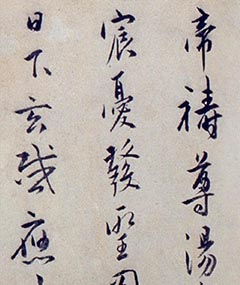 帝禱尊湯
宸憂發聖
日下玄感應